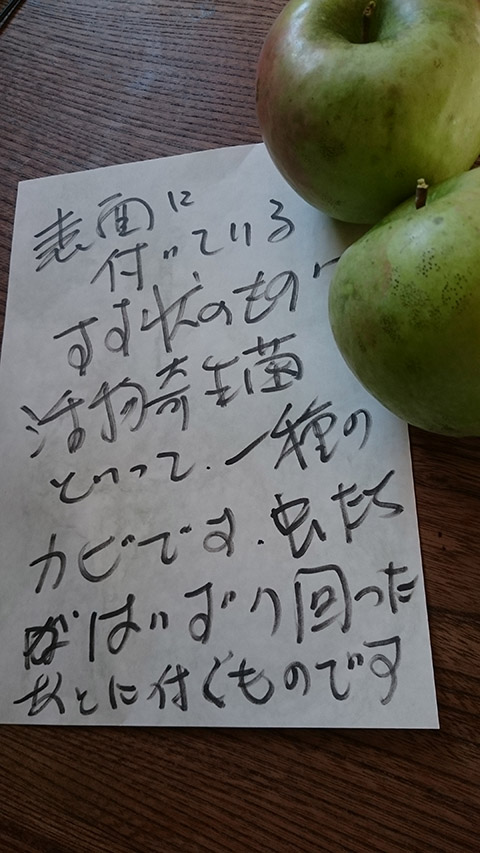 表面に
付いている
すす状のもの
活物寄生菌
といって、一種の
カビです。虫たち
がはいずり回った
あとに付くものです